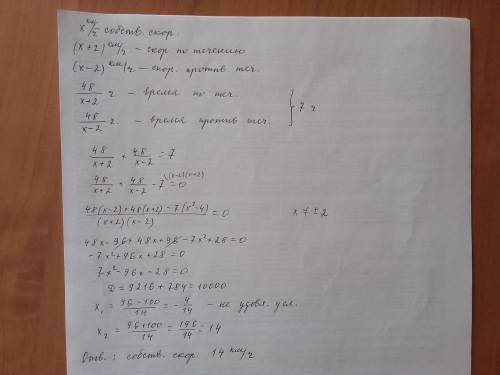 x км/ч собств. скор.
(x+2) км/ч – скор по течению
(x-2) км/ч – скор. против теч.
48/(x+2) ч – время по теч.
48/(x-2) ч. – время против теч. } 7 ч.
48/(x+2) + 48/(x-2) = 7
48/(x+2) + 48/(x-2) - 7 \(x-2)(x+2) = 0
(48(x-2)+48(x+2)-7(x²-4))/((x+2)(x-2)) = 0 x ≠ ±2
48x-96+48x+96-7x²+28=0
-7x²+96x+28=0
7x²-96x-28=0
D=9216+784=10000
x₁ = (96-100)/14 = -4/14 – не удовл. усл.
x₂ = (96+100)/14 = 196/14 = 14
Отв.: собств. скор. 14 км/ч